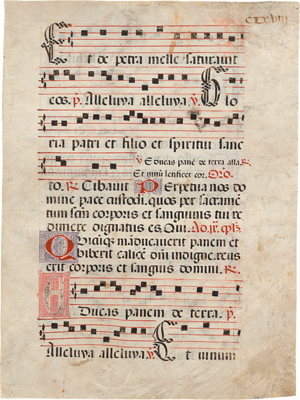 clxxviij
Et de petra melle saturauit
eos. p. Alleluya alleluya. v. Glo
ria patri et filio et spiritui sanc
v. Educas panē de terra alla. R.
Et vinū letificet cor. Oro̅
to. R. Cibauit Perpetua nos do
mine pace custodi. quos per sacramē
tum sc̄m corporis et sanguinis tui re
dimere dignatus es. Qui.
Quicūqȝ māducauerit panem et
biberit calicē dn̄i indigne. reus
erit corporis et sanguis domini. R.
Educas panem de terra. p.
Alleluya alleluya. v. Et uinum